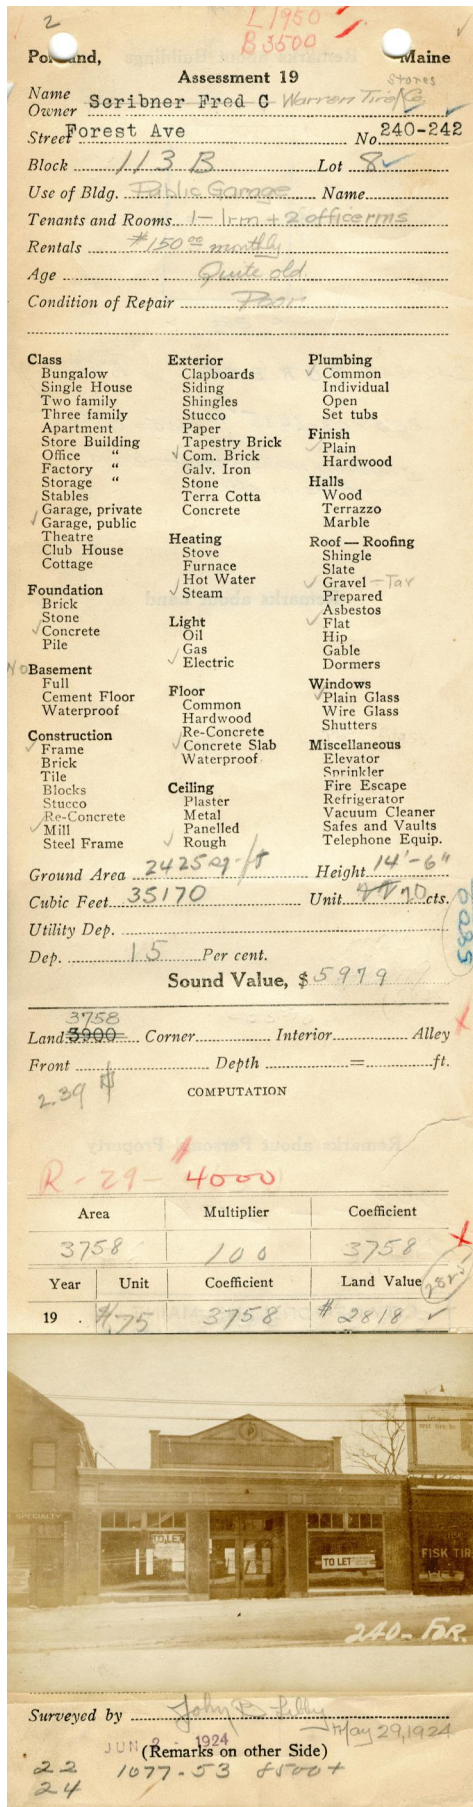 2
L 1950
B 3500
Portland, Maine
Assessment 19
Stores
Name
Owner Scribner Fred C Warren Tire Co
Street Forest Ave No 240-242
Block 113 B Lot 8
Use of Bldg. Public Garage Name
Tenants and Rooms 1-1rm + 2 office rms
Rentals $150.00 monthly
Age Quite old
Condition of Repair Poor
Class
Bungalow
Single House
Two family
Three family
Apartment
Store Building
Office "
Factory "
Storage "
Stables
Garage, private
✓ Garage, public
Theatre
Club House
Cottage
Foundation
Brick
Stone
✓ Concrete
Pile
No Basement
Full
Cement Floor
Waterproof
Construction
✓ Frame
Brick
Tile
Blocks
Stucco
Re-Concrete
✓ Mill
Steel Frame
Exterior
Clapboards
Siding
Shingles
Stucco
Paper
Tapestry Brick
✓ Com. Brick
Galv. Iron
Stone
Terra Cotta
Concrete
Heating
Stove
Furnace
Hot Water
✓ Steam
Light
Oil
Gas
✓ Electric
Floor
Common
Hardwood
Re-Concrete
✓ Concrete Slab
Waterproof
Ceiling
Plaster
Metal
Panelled
✓ Rough
Plumbing
✓ Common
Individual
Open
Set tubs
Finish
✓ Plain
Hardwood
Halls
Wood
Terrazzo
Marble
Roof — Roofing
Shingle
Slate
✓ Gravel - Tar
Prepared
Asbestos
✓ Flat
Hip
Gable
Dormers
Windows
✓ Plain Glass
Wire Glass
Shutters
Miscellaneous
Elevator
Sprinkler
Fire Escape
Refrigerator
Vacuum Cleaner
Safes and Vaults
Telephone Equip.
Ground Area 2425 sq-ft Height 14'-6"
Cubic Feet 35170 Unit 20 cts.
Utility Dep.
Dep. 15 Per cent.
Sound Value, $ 5979
3758
Land 3900 Corner Interior Alley
Front Depth = ft.
2.39
COMPUTATION
R-29- 4000
Area Multiplier Coefficient
3758 100 3758
Year Unit Coefficient Land Value
19 . $.75 3758 $2818 ✓
SPECIALTY
TO LET
TO LET
FISK TIR
240-FOR.
Surveyed by John B Libby
May 29, 1924
JUN 2 - 1924
(Remarks on other Side)
22 1077-53 8500+
24